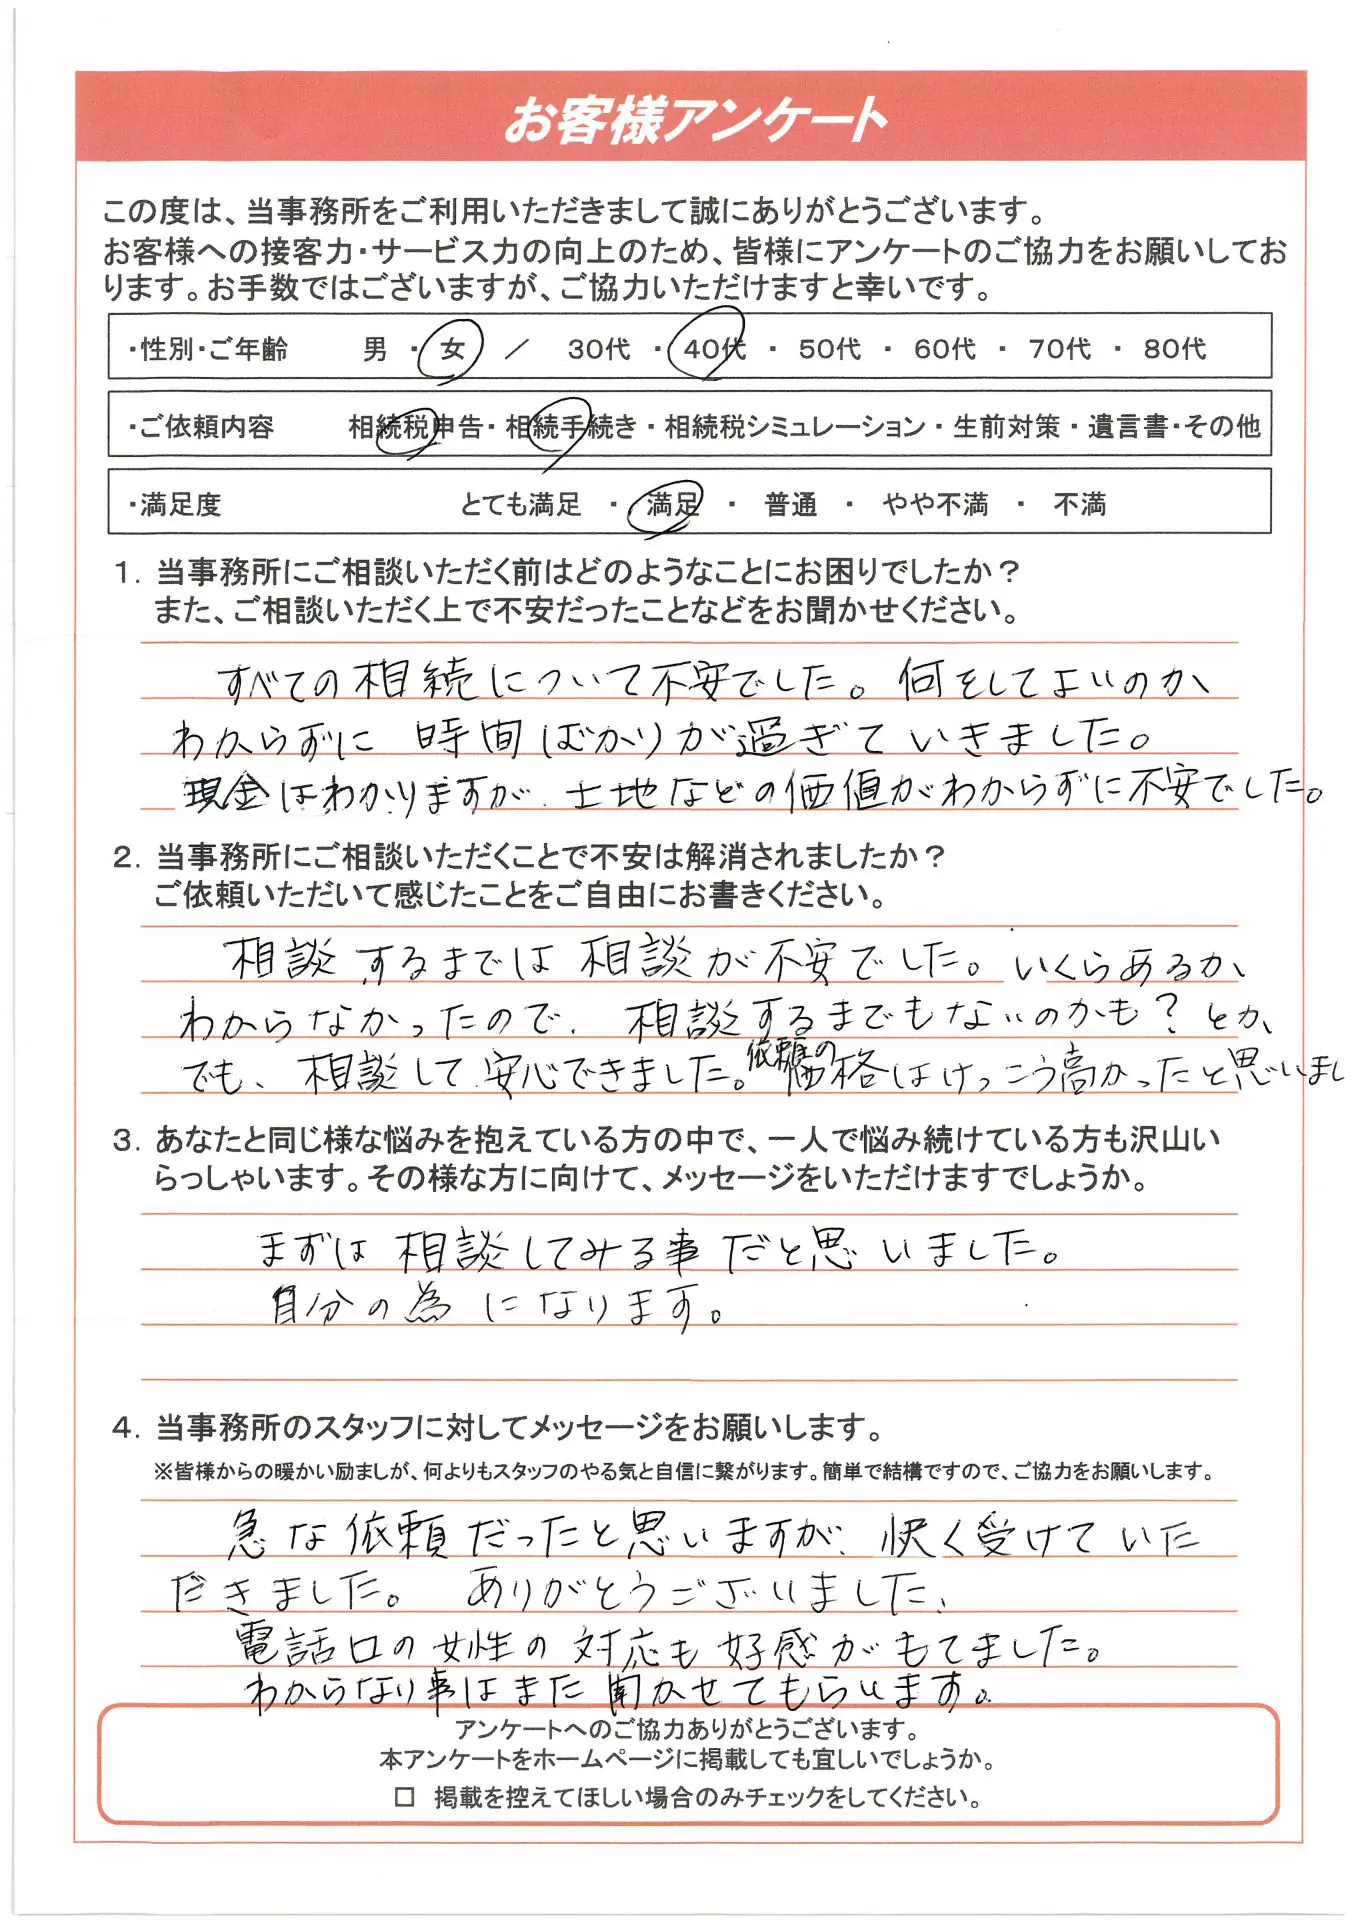 お客様アンケート
この度は、当事務所をご利用いただきまして誠にありがとうございます。
お客様への接客力・サービス力の向上のため、皆様にアンケートのご協力をお願いしてお
ります。お手数ではございますが、ご協力いただけますと幸いです。
・性別・ご年齢 男 ・ 女 ／ 30代 ・ 40代 ・ 50代 ・ 60代 ・ 70代 ・ 80代
・ご依頼内容 相続税申告・相続手続き・相続税シミュレーション・生前対策・遺言書・その他
・満足度 とても満足 ・ 満足 ・ 普通 ・ やや不満 ・ 不満
1. 当事務所にご相談いただく前はどのようなことにお困りでしたか？
また、ご相談いただく上で不安だったことなどをお聞かせください。
すべての相続について不安でした。何をしてよいのか、
わからずに 時間ばかりが過ぎていきました。
現金はわかりますが、土地などの価値がわからずに不安でした。
2. 当事務所にご相談いただくことで不安は解消されましたか？
ご依頼いただいて感じたことをご自由にお書きください。
相談するまでは相談が不安でした。いくらあるか、
わからなかったので、相談するまでもないのかも？とか、
でも、相談して安心できました。依頼の価格はけっこう高かったと思いまし
3. あなたと同じ様な悩みを抱えている方の中で、一人で悩み続けている方も沢山い
らっしゃいます。その様な方に向けて、メッセージをいただけますでしょうか。
まずは相談してみる事だと思いました。
自分の為になります。
4. 当事務所のスタッフに対してメッセージをお願いします。
※皆様からの暖かい励ましが、何よりもスタッフのやる気と自信に繋がります。簡単で結構ですので、ご協力をお願いします。
急な依頼だったと思いますが、快く受けていた
だきました。ありがとうございました、
電話口の女性の対応も好感がもてました。
わからない事はまた聞かせてもらいます。
アンケートへのご協力ありがとうございます。
本アンケートをホームページに掲載しても宜しいでしょうか。
□ 掲載を控えてほしい場合のみチェックをしてください。